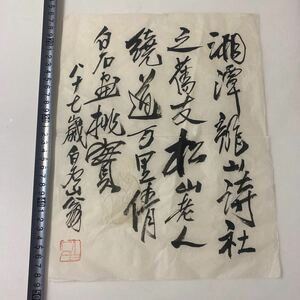 湘潭龍山詩社
之舊友松山老人
繞道万里倩
白石画桃實
八十七歲白石山翁